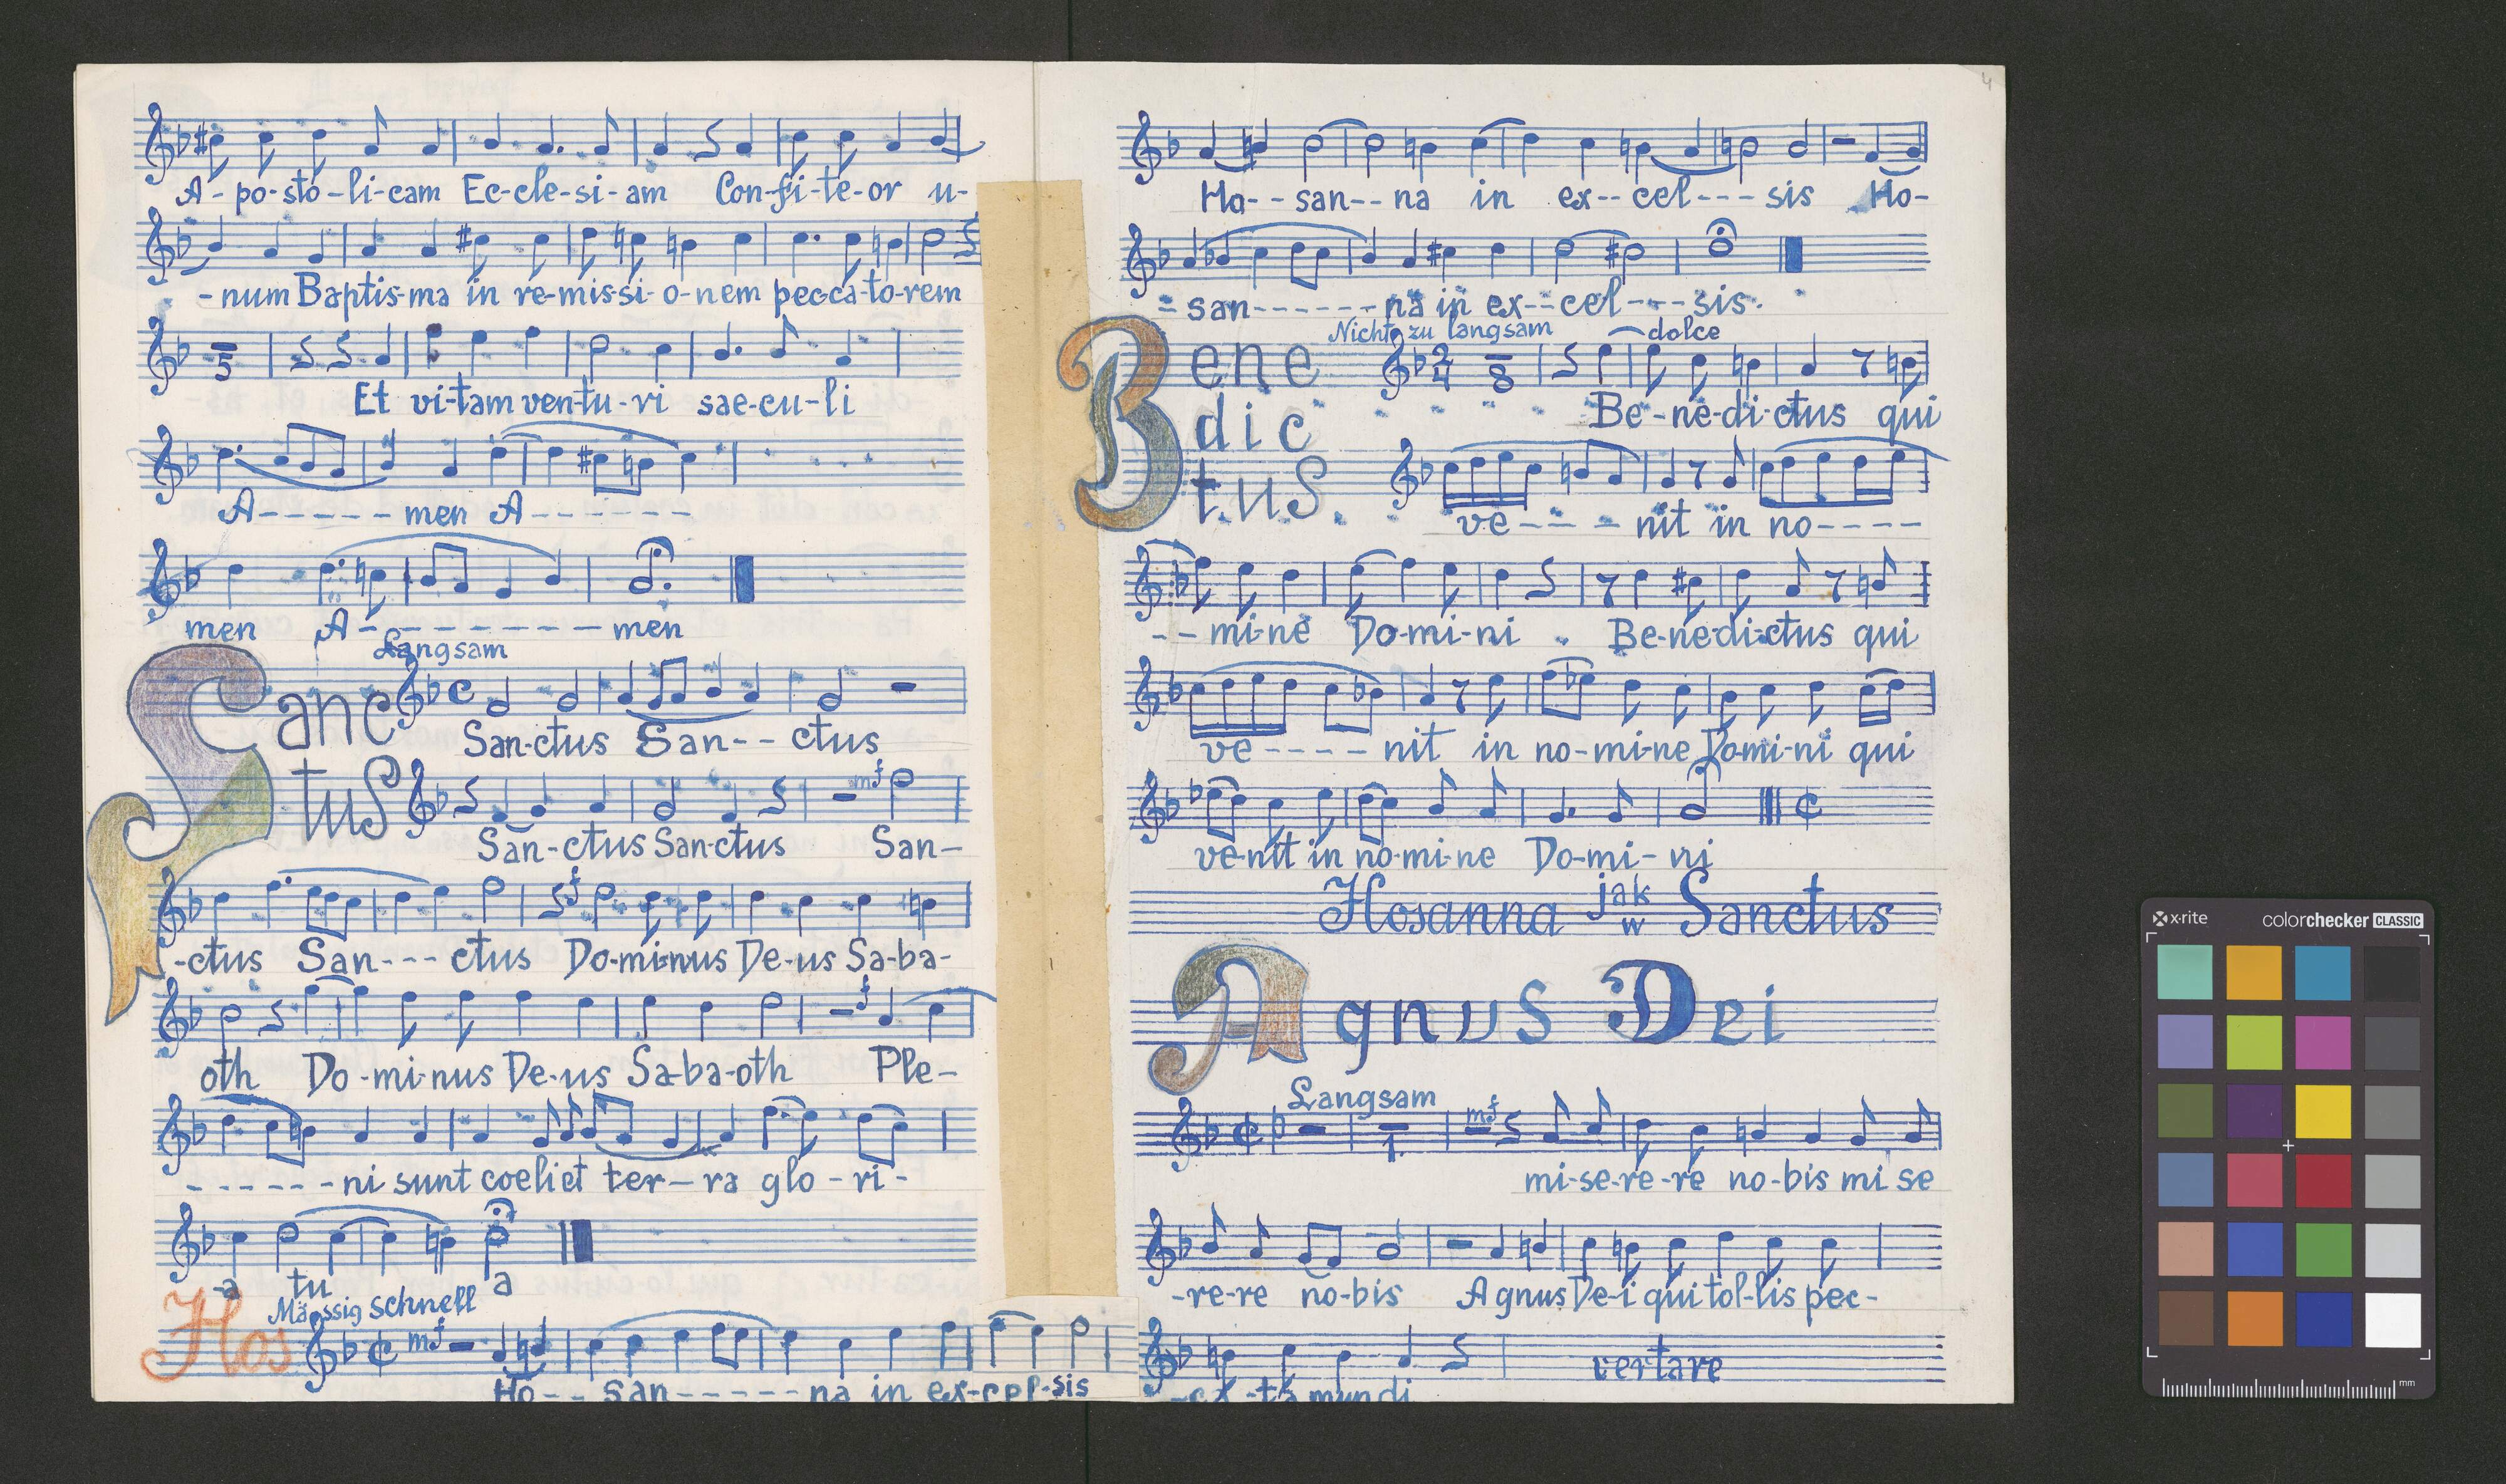 A-po-sto-li-cam Ec-cle-si-am Con-fi-te-or u-
-num Baptis-ma in re-mis-si-o-nem pec-ca-to-rem
5
Et vi-tam ven-tu-ri sae-cu-li
A------men A------
men A--------men
Langsam
Sanc
San-ctus San--ctus
tus
mf
San-ctus San-ctus San-
f
-ctus San---ctus Do-mi-nus De-us Sa-ba-
f
oth Do-mi-nus De-us Sa-ba-oth Ple-
------ni sunt coeli et ter-ra glo-ri-
-a tu a
Hos
Mässig schnell
mf
Ho--san-----na in ex-cel-sis
4
Ho--san--na in ex--cel---sis Ho-
=san------na in ex--cel---sis.
Benedictus
Nicht zu langsam dolce
2/4 8
Be-ne-di-ctus qui
ve----nit in no----
--mi-ne Do-mi-ni . Be-ne-di-ctus qui
ve----nit in no-mi-ne Do-mi-ni qui
ve-nit in no-mi-ne Do-mi-ni
Hosanna jak w Sanctus
Agnus Dei
Langsam
1 mf
mi-se-re-re no-bis mi se
-re-re no-bis Agnus De-i qui tol-lis pec-
vertare
-ca-ta mundi
x-rite colorchecker CLASSIC
mm